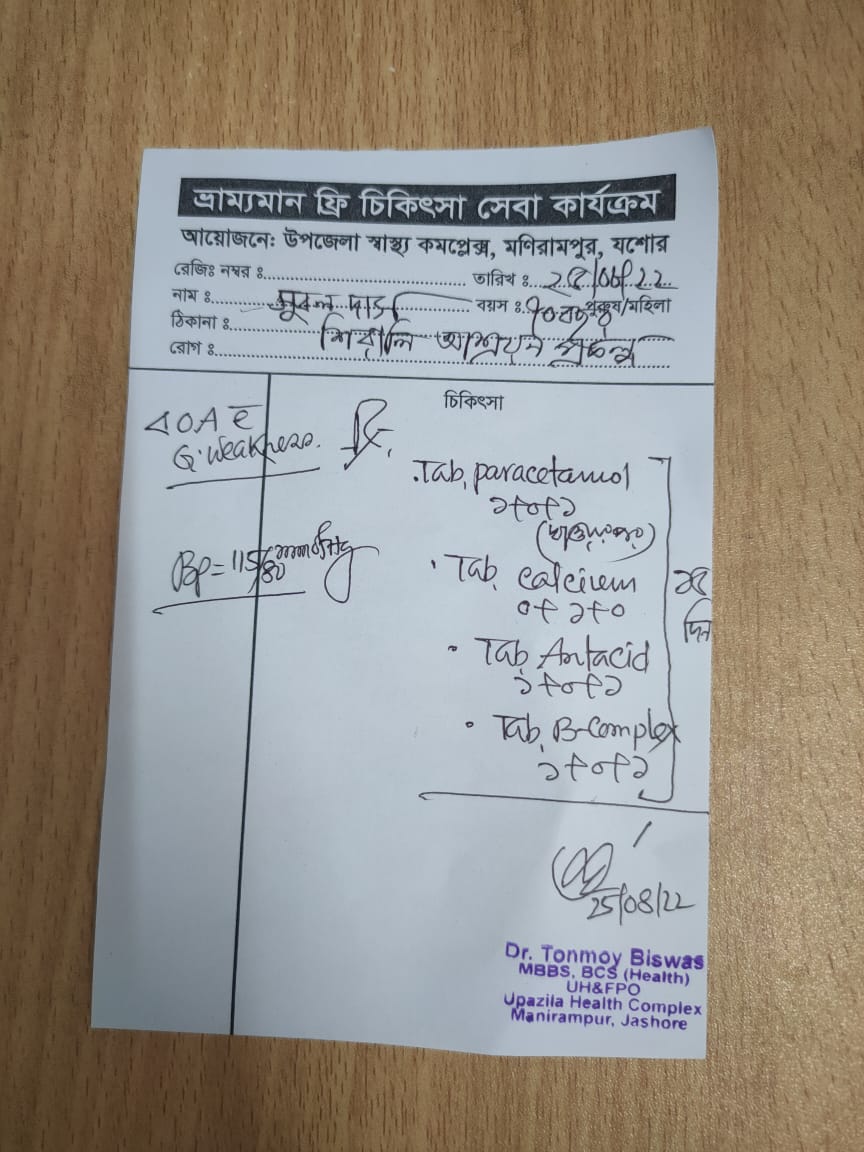 ভ্রাম্যমান ফ্রি চিকিৎসা সেবা কার্যক্রম
আয়োজনে: উপজেলা স্বাস্থ্য কমপ্লেক্স, মণিরামপুর, যশোর
রেজিঃ নম্বর ঃ
তারিখ ঃ ২৫/০৮/২২
নাম ঃ সুবল দাস
বয়স ঃ ৭০ বছর পুরুষ/মহিলা
ঠিকানা ঃ
রোগ ঃ
চিকিৎসা
OA c̄
G. weakness.
BP = 115/80 mmofHg
Rx,
. Tab. paracetamol
১+০+১
. Tab. calcium
০+১+০
. Tab. Antacid
১+০+১
. Tab. B-Complex
১+০+১
দিন
25/08/22
Dr. Tonmoy Biswas
MBBS, BCS (Health)
UH&FPO
Upazila Health Complex
Manirampur, Jashore